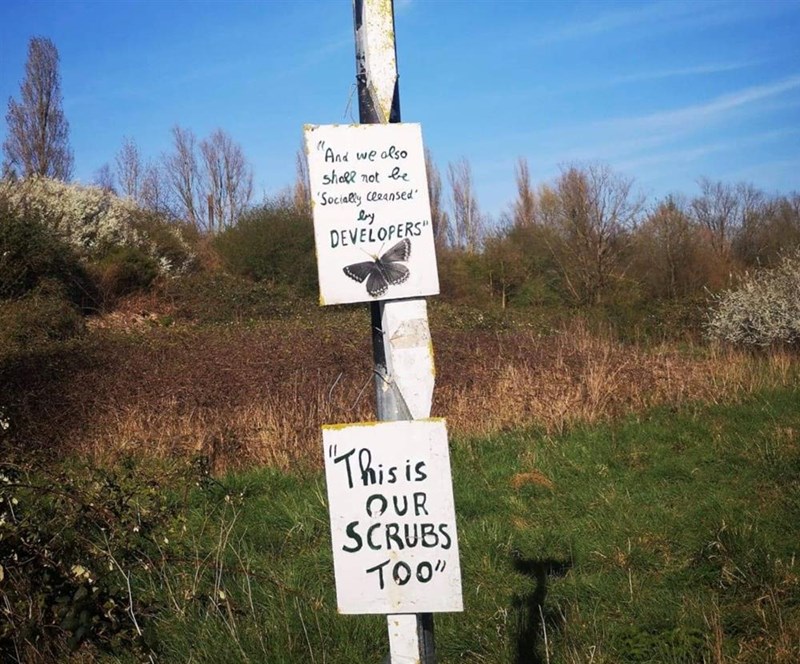 "And we also
shall not be
'Socially Cleansed'
by
DEVELOPERS"
"This is
OUR
SCRUBS
TOO"